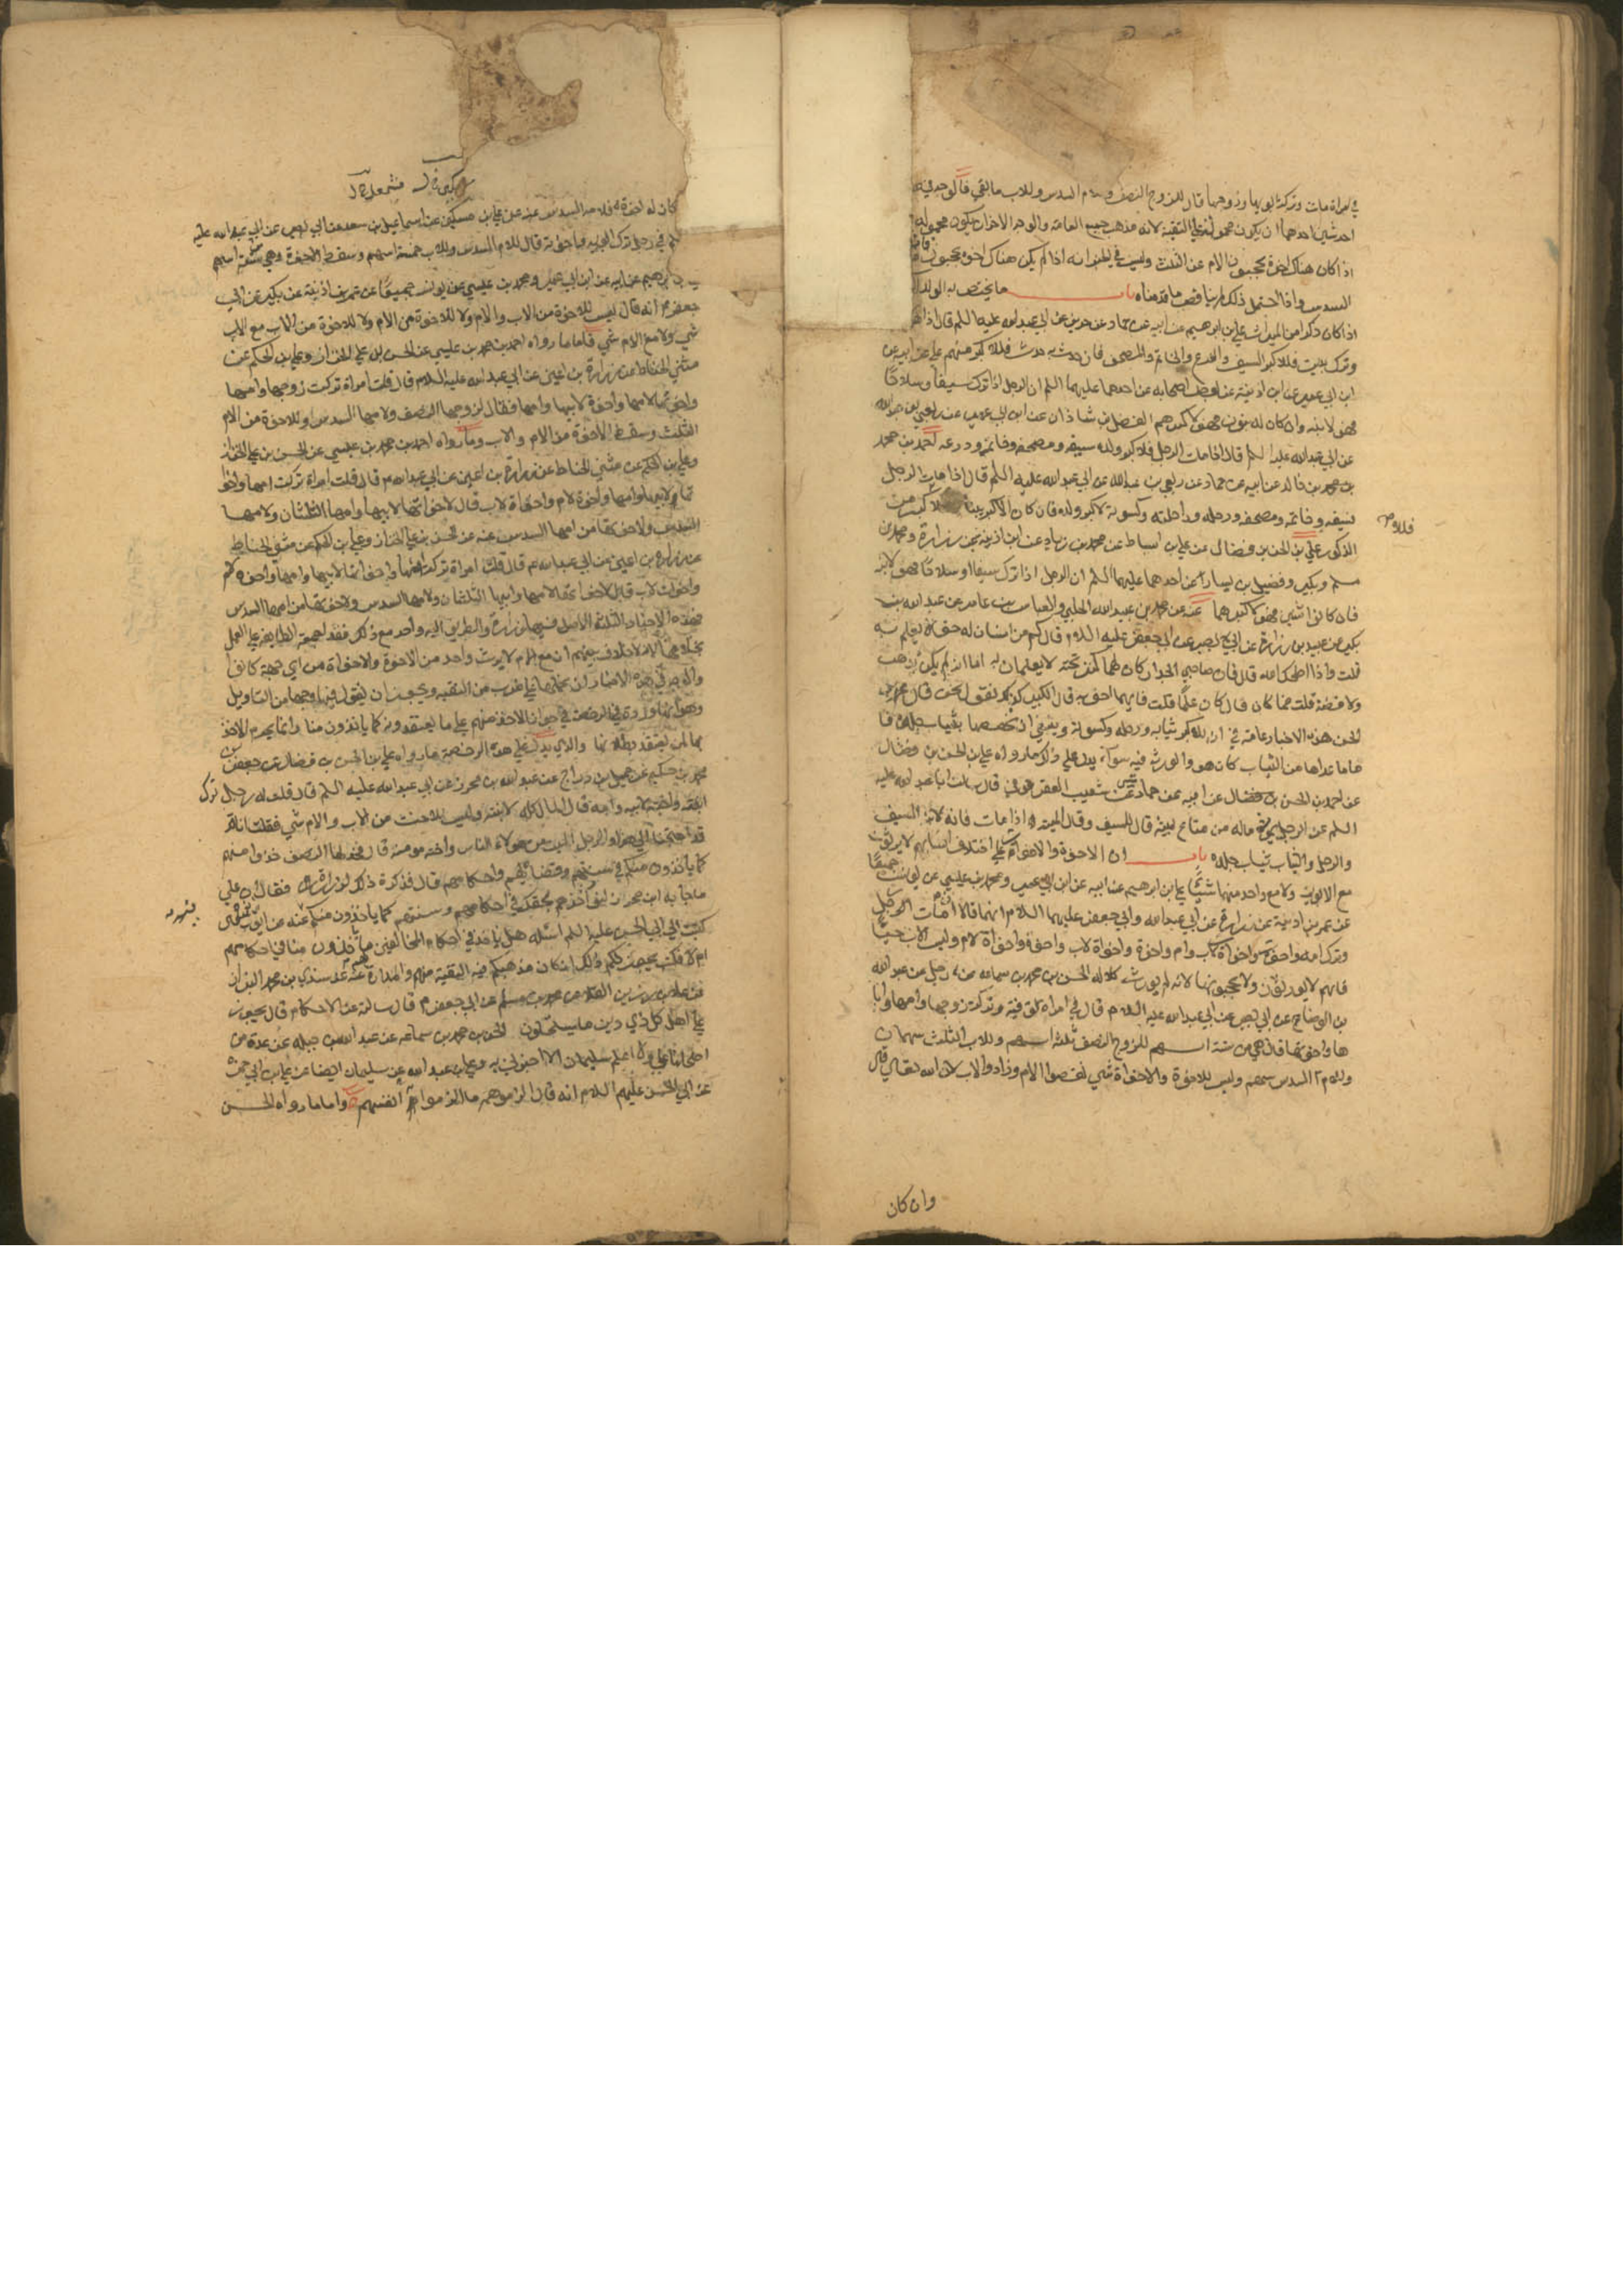 في امراة ماتت وتركت ابويها وزوجها قال للزوج النصف وللام السدس وللاب ما بقي فالوجه فيه
احد شيئين احدهما ان يكون محمولا على التقية لانه مذهب جميع العامة والوجه الاخر ان يكون محمولا
اذا كان هناك اخوة يحجبون الام عن الثلث وليس في الخبر انه اذا لم يكن هناك اخوة يحجبون
السدس واذا احتمل ذلك لم يناقض ما قدمناه باب ما يختص به الولد
اذا كان ذكرا من الميراث علي بن ابرهيم عن ابيه عن حماد عن حريز عن ابي عبد الله عليه السلم قال اذا
وترك بنين فللاكبر السيف والدرع والخاتم والمصحف فان حدث به حدث فللاكبر منهم علي عن ابيه عن
ابن ابي عمير عن ابن اذينة عن بعض اصحابه عن احدهما عليهما السلم ان الرجل اذا ترك سيفا وسلاحا
فهو لابنه وان كان له بنون فهو لاكبرهم الفضل بن شاذان عن ابن ابي عمير عن ربعي بن عبد الله
عن ابي عبد الله عليه السلم قال اذا مات الرجل فلاكبر ولده سيفه ومصحفه وخاتمه ودرعه احمد بن محمد
بن محمد بن خالد عن ابيه عن حماد عن ربعي بن عبد الله عن ابي عبد الله عليه السلم قال اذا مات الرجل
فسيفه وخاتمه ومصحفه ورحله وراحلته وكسوته لاكبر ولده فان كان الاكبر بنتا فللاكبر من
الذكور علي بن الحسن بن فضال عن علي بن اسباط عن محمد بن زياد عن ابن اذينة عن زرارة ومحمد بن
مسلم وبكير وفضيل بن يسار عن احدهما عليهما السلم ان الرجل اذا ترك سيفا او سلاحا فهو لابنه
فان كانوا اثنين فهو لاكبرهما عنه عن محمد بن عبيد الله الحلبي والعباس بن عامر عن عبد الله بن
بكير عن عبيد بن زرارة عن ابي بصير عن ابي جعفر عليه السلام قال كم من انسان له حق لا يعلم به
قلت وما ذاك اصلحك الله قال فان صاحبي الجدار كان لهما كنز تحته لا يعلمان به اما انه لم يكن ذهب
ولا فضة قلت فما كان قال كان علما قلت فايهما احق به قال الكبير كذلك نقول نحن قال محمد بن
الحسن هذه الاخبار عامة في ان للاكبر ثيابه ورحله وكسوته وينبغي ان نخصصها بثياب جلده فا
ما ما عداها من الثياب كان هو والورثة فيه سواء يدل على ذلك ما رواه علي بن الحسن بن فضال
عن احمد بن الحسن بن فضال عن ابيه عن حماد بن عيسى عن شعيب العقرقوفي قال سالت ابا عبد الله عليه
السلم عن الرجل يموت ما له من متاع بيته قال السيف وقال الميت اذا مات فان لابنه السيف
والرحل والثياب ثياب جلده باب ان الاخوة والاخوات على اختلاف انسابهم لا يرثون
مع الابوين ولا مع واحد منهما شيئا علي بن ابرهيم عن ابيه عن ابن ابي عمير ومحمد بن عيسى عن يونس جميعا
عن عمر بن اذينة عن زرارة عن ابي عبد الله وابي جعفر عليهما السلام انهما قالا ان مات الرجل
وترك امه واخوة واخوات لاب وام واخوة واخوات لاب واخوة واخوات لام وليس الاب حيا
فانهم لا يورثون ولا يحجبونها لانه لم يورث كلالة الحسن بن محمد بن سماعة عن رجل عن عبد الله
بن الوضاح عن ابي بصير عن ابي عبد الله عليه السلام قال في امراة توفيت وتركت زوجها وامها واباها
ها واخوتها قال هي من ستة اسهم للزوج النصف ثلثة اسهم وللاب الثلث سهمان
وللام السدس سهم وليس للاخوة والاخوات شي نقصوا الام وزادوا الاب لان الله تعالى قال
وان كان
كان له اخوة فلامه السدس عنه عن علي بن مسكين عن اسماعيل بن سعد عن ابي بصير عن ابي عبد الله عليه
السلم في رجل ترك ابويه واخوته قال للام السدس وللاب خمسة اسهم وسقط الاخوة وهي ستة اسهم
علي بن ابرهيم عن ابيه عن ابن ابي عمير ومحمد بن عيسى عن يونس جميعا عن عمر بن اذينة عن بكير عن ابي
جعفر م انه قال ليس للاخوة من الاب والام ولا للاخوة من الام ولا للاخوة من الاب مع الاب
شي ولا مع الام شي فاما ما رواه احمد بن محمد بن عيسى عن الحسن بن علي الخزاز وعلي بن الحكم عن
مثنى الحناط عن زرارة بن اعين عن ابي عبد الله عليه السلام قال قلت امراة تركت زوجها وامها
واخوتها لامها واخوة لابيها وامها فقال لزوجها النصف ولامها السدس وللاخوة من الام
الثلث وسقط الاخوة من الام والاب وما رواه احمد بن محمد بن عيسى عن الحسن بن علي الخزاز
وعلي بن الحكم عن مثنى الحناط عن زرارة بن اعين عن ابي عبد الله م قال قلت امراة تركت امها واخوا
تها لابيها وامها واخوة لام واخوات لاب قال لاخواتها لابيها وامها الثلثان ولامها
السدس ولاخوتها من امها السدس عنه عن الحسن بن علي الخزاز وعلي بن الحكم عن مثنى الحناط
عن زرارة بن اعين عن ابي عبد الله م قال قلت امراة تركت امها واخواتها لابيها وامها واخوة لام
واخوات لاب قال لاخواتها لامها وابيها الثلثان ولامها السدس ولاخوتها من امها السدس
فهذه الاخبار الثلثة الاصل فيها زرارة والطريق اليه واحد مع ذلك فقد اجمعت الطايفة على العمل
بخلافها لانه لا خلاف بينهم ان مع الام لا يرث واحد من الاخوة والاخوات من اي جهة كانوا
والوجه في هذه الاخبار ان نحملها على ضرب من التقية ويجوز ان نقول فيها وجها من التاويل
وهو انها وردت في الرخصة في جواز الاخذ منهم على ما يعتقدونه كما ياخذون منا وانما يحرم الاخذ
بها لمن يعتقد بطلانها والذي يدل على هذه الرخصة ما رواه علي بن الحسن بن فضال عن جعفر بن
محمد بن حكيم عن جميل بن دراج عن عبد الله بن محرز عن ابي عبد الله عليه السلم قال قلت له رجل ترك
ابنته واخته لابيه وامه قال المال كله لابنته وليس للاخت من الاب والام شي فقلت انا
قد احتجنا الى هذا والرجل الميت من هولاء الناس واخته مومنة قال فخذ لها النصف خذوا منهم
كما ياخذون منكم في سنتهم وقضائهم واحكامهم قال فذكرت ذلك لزرارة فقال ان على
ما جا به ابن محرز لنورا خذهم بحقك في احكامهم وسنتهم كما ياخذون منكم عنه عن ايوب بن نوح قال
كتبت الى ابي الحسن عليه السلم اسئله هل ناخذ في احكام المخالفين ما ياخذون منا في احكامهم
ام لا فكتب يجوز لكم ذلك ان كان مذهبكم فيه التقية منهم والمداراة عنه عن سندي بن محمد البزاز
عن علاء بن رزين القلا عن محمد بن مسلم عن ابي جعفر م قال سالته عن الاحكام قال يجوز
على اهل كل ذي دين ما يستحلون الحسن بن محمد بن سماعة عن عبد الله بن جبلة عن عدة من
اصحابنا علي ولا اعلم سليمان الا اخبرني به وعلي بن عبد الله عن سليمان ايضا عن علي بن ابي حمزة
عن ابي الحسن عليهم السلام انه قال الزموهم ما الزموا به انفسهم واما ما رواه الحسن